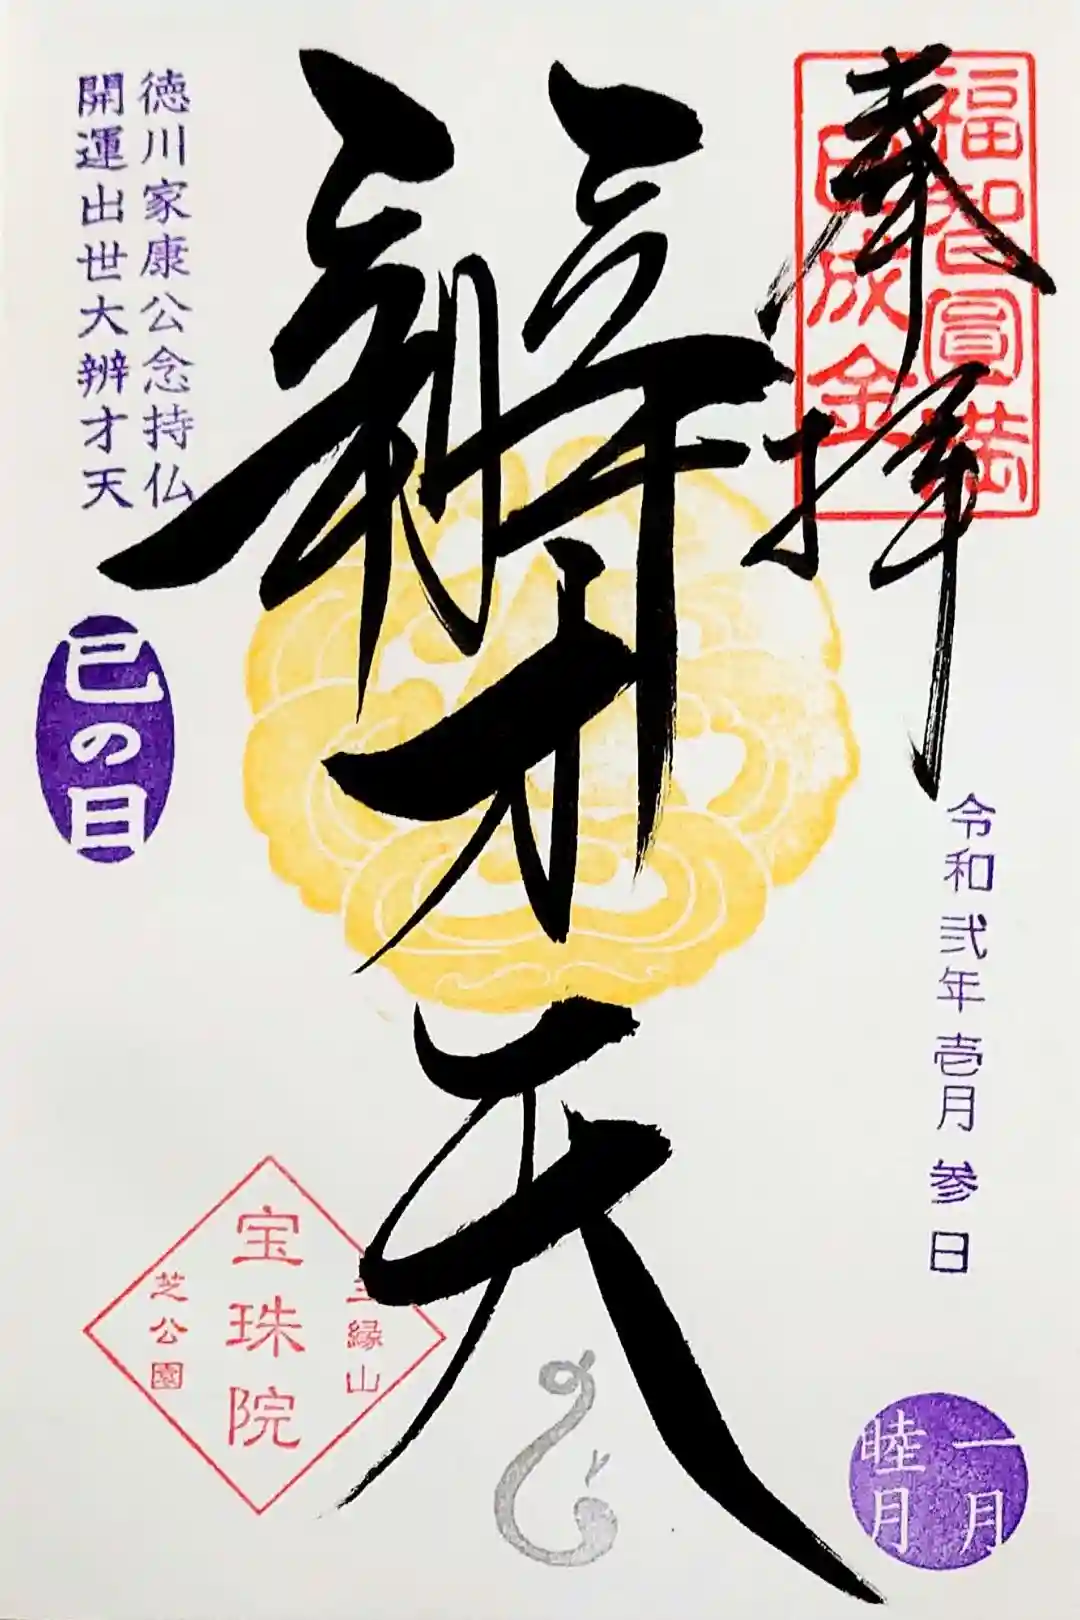 奉拝
福智圓満
巳成金
令和弐年壱月参日
一月
睦月
辨才天
徳川家康公念持仏
開運出世大辨才天
巳の日
縁山
宝珠院
芝公園